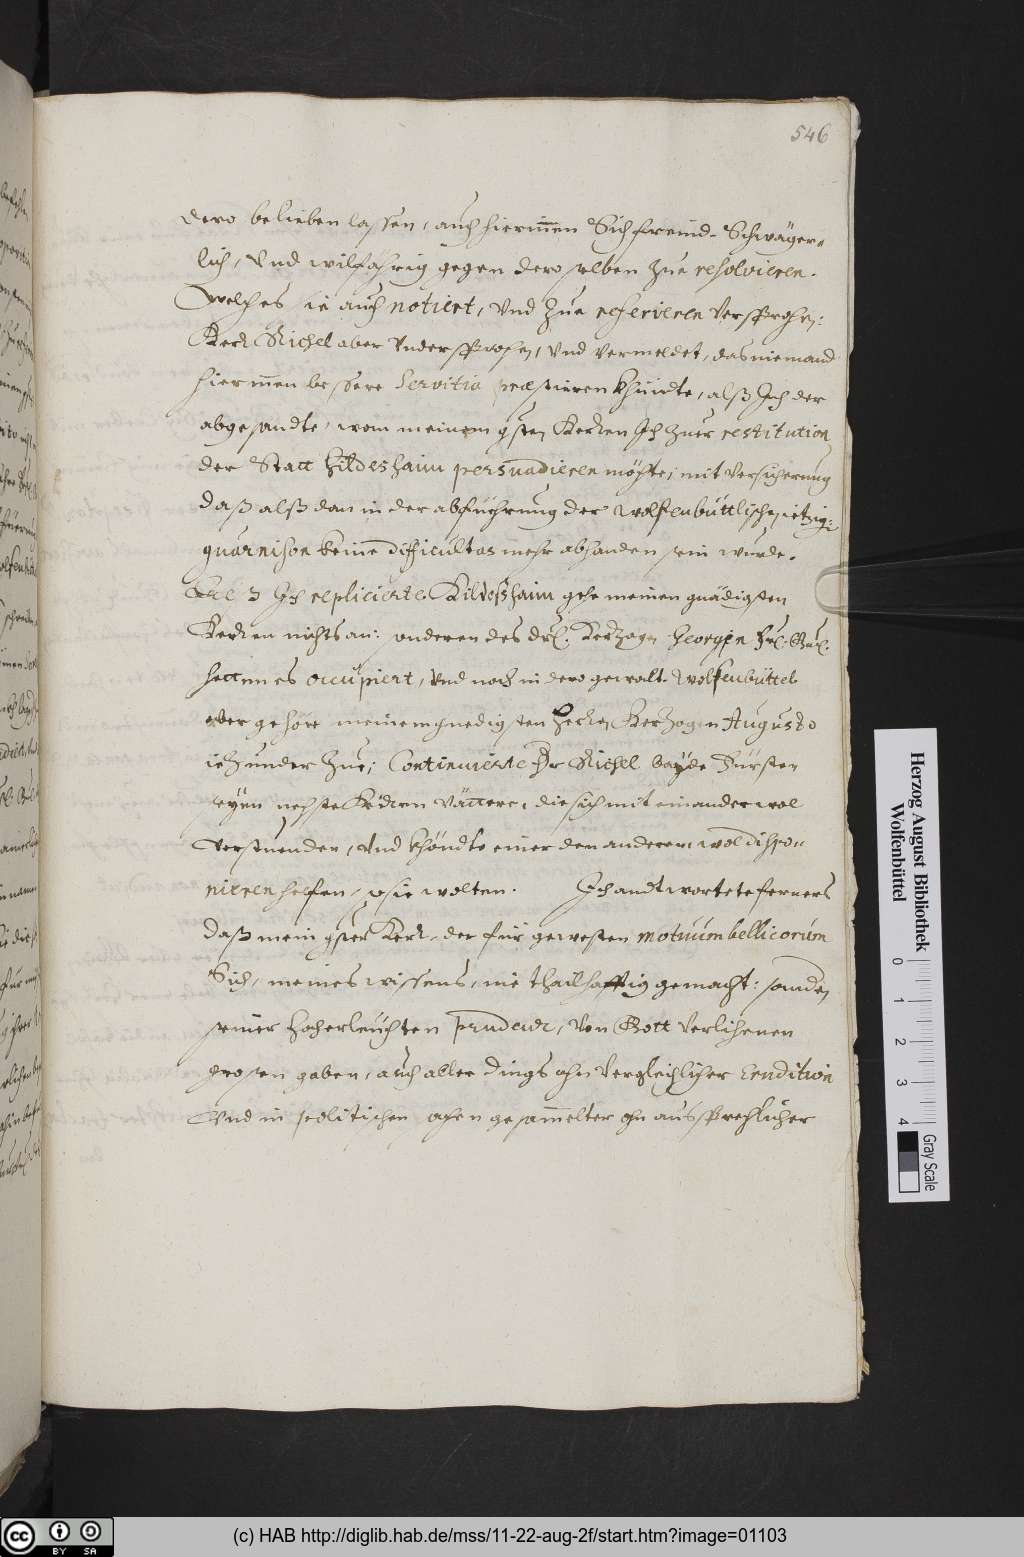 546
dero belieben lassen, auch hierinnen Sich freind- Schwäger-
lich, Vnd wilfahrig gegen deroselben Zue resolvieren.
Welches ie auch notiert, Vnd Zue referieren Versprochen:
Herr Richel aber Vndersprochen, Vnd Vermeldet, das niemand
hierinnen bessere Servitia præstieren khündte, alß Ich der
abgesandte, wom meinem gsten Herren Ich Zuer restitution
der Statt Hildeshaim persuadieren möchte, mit Versicherung
daß alß dan in der abführung der Wolfenbüttlischen ietzig:
guarnison keine difficultas mehr abhanden sein wurde.
Ich replicierte. Hildeßhaim gehe meinen gnädigsten
Herren nichts an: sonderen des Herzogen Georgen
hetten es occupiert, Vnd noch in dero gewalt. Wolfenbüttel
aber gehöre meinem gnedigsten Herren Herzogen Augusto
iezunder Zue; Continuierte Hr Richel bayde Fürsten
seyen nechste Vättere, die sich mit einander wol
Verstuenden, Vnd khöndte einer dem anderen, wol dispo-
nieren helfen, so sie wolten. Ich andtwortete ferners
daß mein gster Herr, der für gewesten motuum bellicorum
Sich, meines wissens, nie thailhafftig gemacht: sonder
seiner Hocherleuchten prudenz, Von Gott Verlihenen
grosen gaben, auch aller dings ohn Vergleichlicher Erudition
Vnd in politischen sachen gesammelter ohn aussprechlicher
Herzog August Bibliothek
Wolfenbüttel
0 1 2 3 4
Gray Scale
(c) HAB http://diglib.hab.de/mss/11-22-aug-2f/start.htm?image=01103
cc BY SA